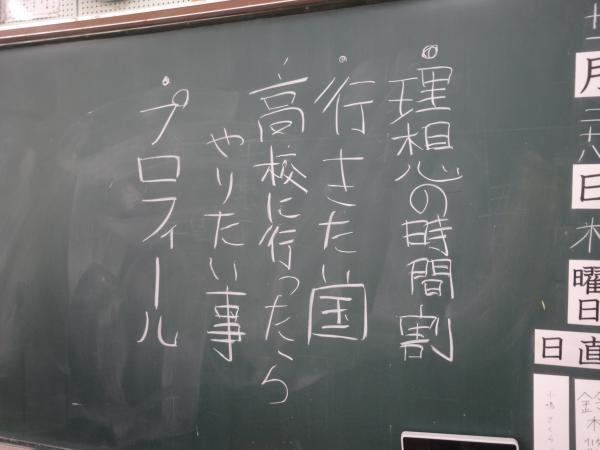 十一
月
二十八
日
木
曜日
日直
鈴木
・理想の時間割
・行きたい国
・高校に行ったら
やりたい事
・プロフィール